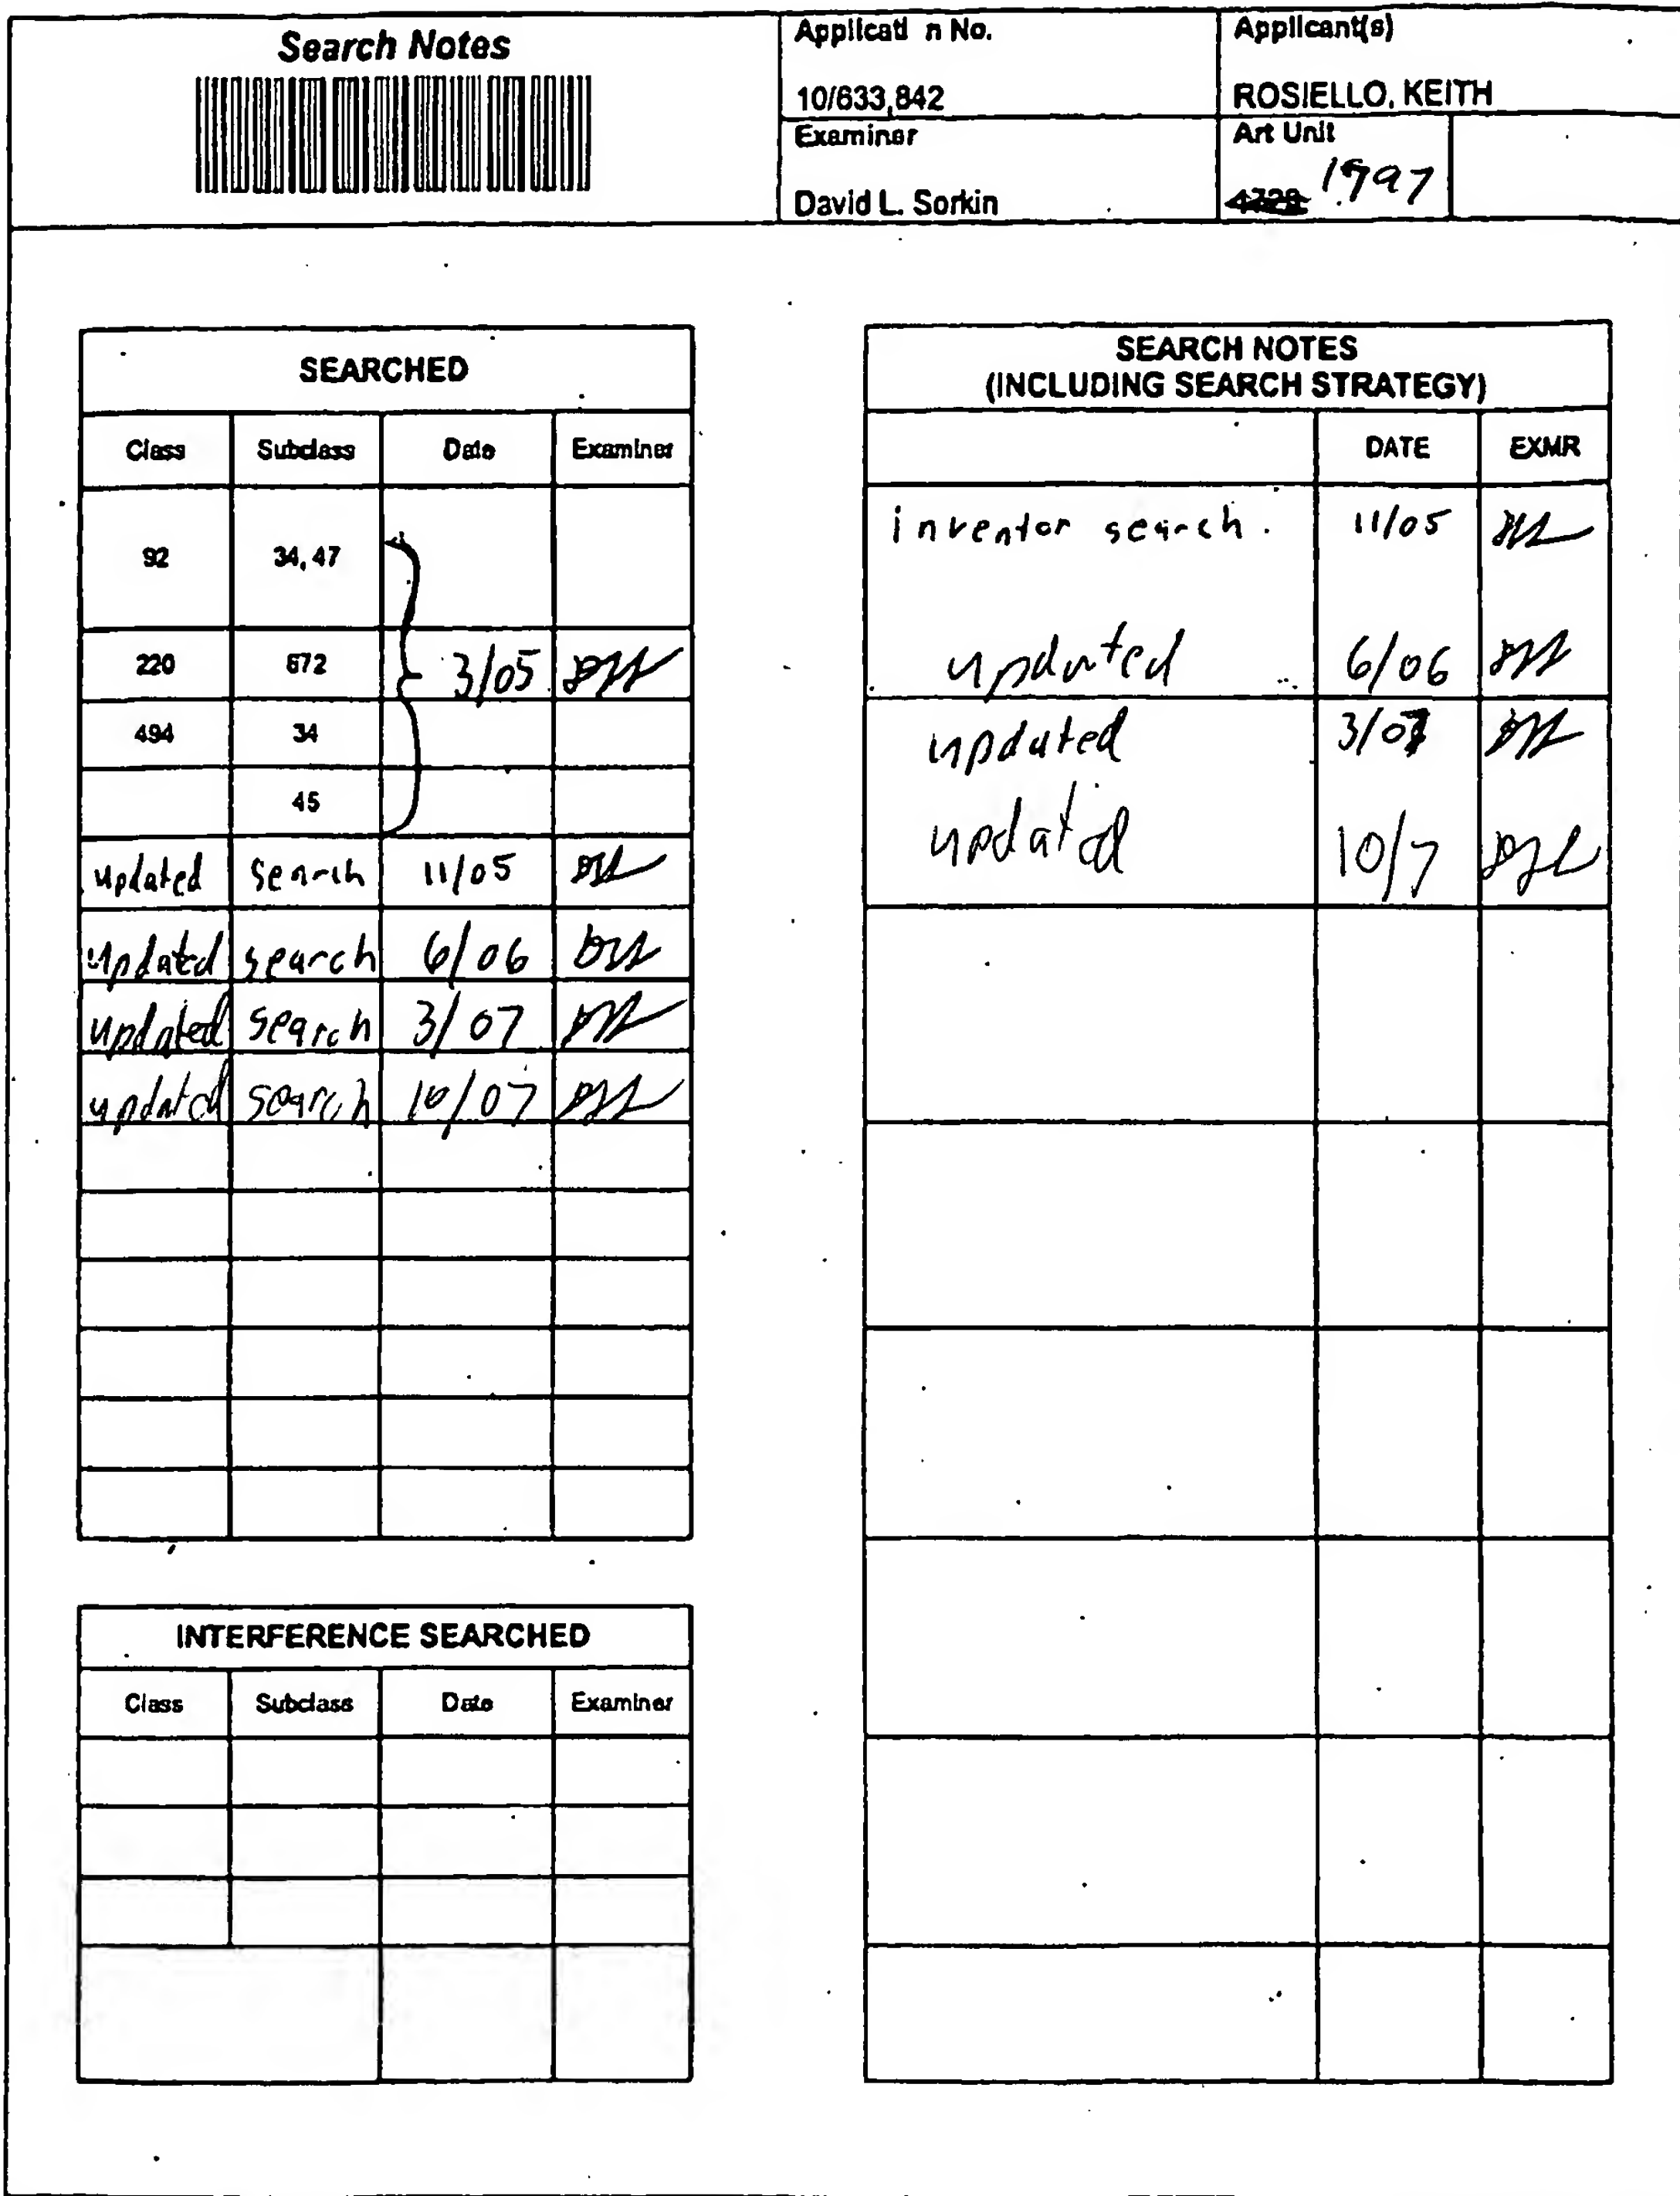 Search Notes
Applicati n No.
10/633,842
Applicant(s)
ROSIELLO, KEITH
Examiner
David L. Sorkin
Art Unit
1797
SEARCHED
Class Subclass Date Examiner
92 34, 47
220 672 3/05
494 34
45
updated search 11/05
updated search 6/06
updated search 3/07
updated search 10/07
INTERFERENCE SEARCHED
Class Subclass Date Examiner
SEARCH NOTES
(INCLUDING SEARCH STRATEGY)
DATE EXMR
inventor search. 11/05
updated 6/06
updated 3/07
updated 10/7